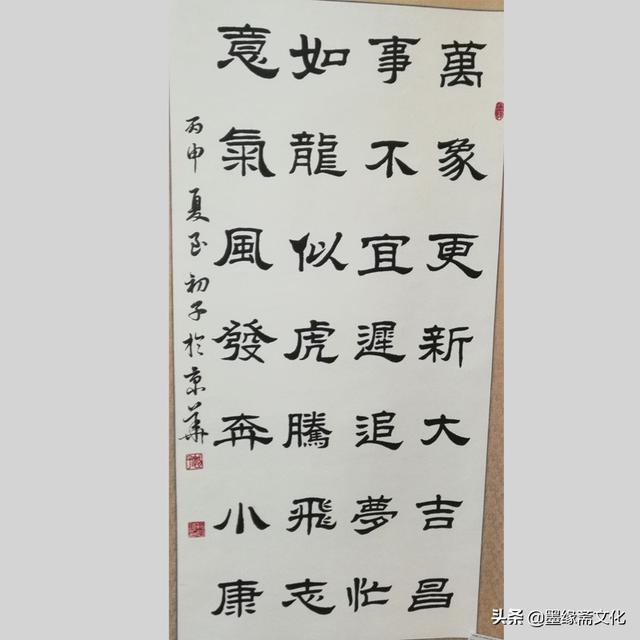 萬象更新大吉昌
事不宜遲追夢忙
如龍似虎騰飛志
意氣風發奔小康
丙申夏至初子於京華
头条 @墨缘斋文化